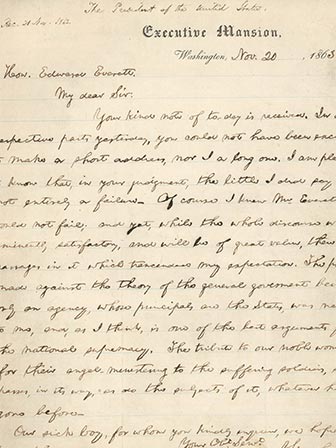 The President of the United States.
Rec. 21 Nov. 1863
Executive Mansion,
Washington, Nov. 20, 1863
Hon. Edward Everett.
My dear Sir:
Your kind note of to-day is received. In
respective parts yesterday, you could not have been exc
make a short address, nor I a long one. I am ple
know that, in your judgment, the little I did say
not entirely a failure. Of course I knew Mr. Everett
ould not fail; and yet, while the whole discourse w
minently satisfactory, and will be of great value, there
assages in it which trancended my expectation. The p
made against the theory of the general government bei
ly an agency, whose principals are the States, was ne
to me, and, as I think, is one of the best arguments f
the national supremacy. The tribute to our noble wom
for their angel-ministering to the suffering soldiers, s
passes, in its way, as do the subjects of it, whatever h
gone before.
Our sick boy, for whom you kindly inquire, we hope
Your Obt. Servt.